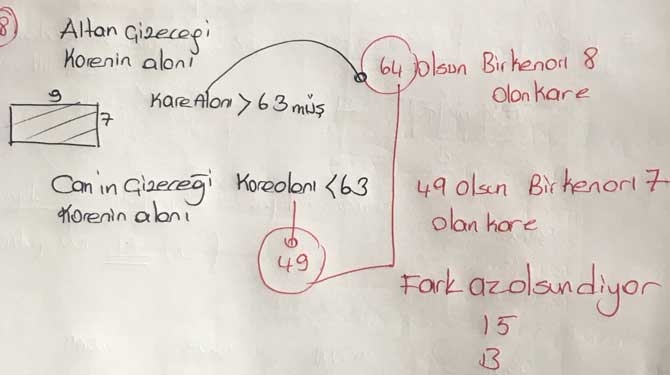 8
Altan Çizeceği
Karenin alanı
64 Olsun Bir kenarı 8
Olan kare
9
7
Kare Alanı > 63 müş
Can'ın Çizeceği Kare alanı < 63
Karenin alanı
49 olsun Bir kenarı 7
olan kare
49
Fark az olsun diyor
15
B